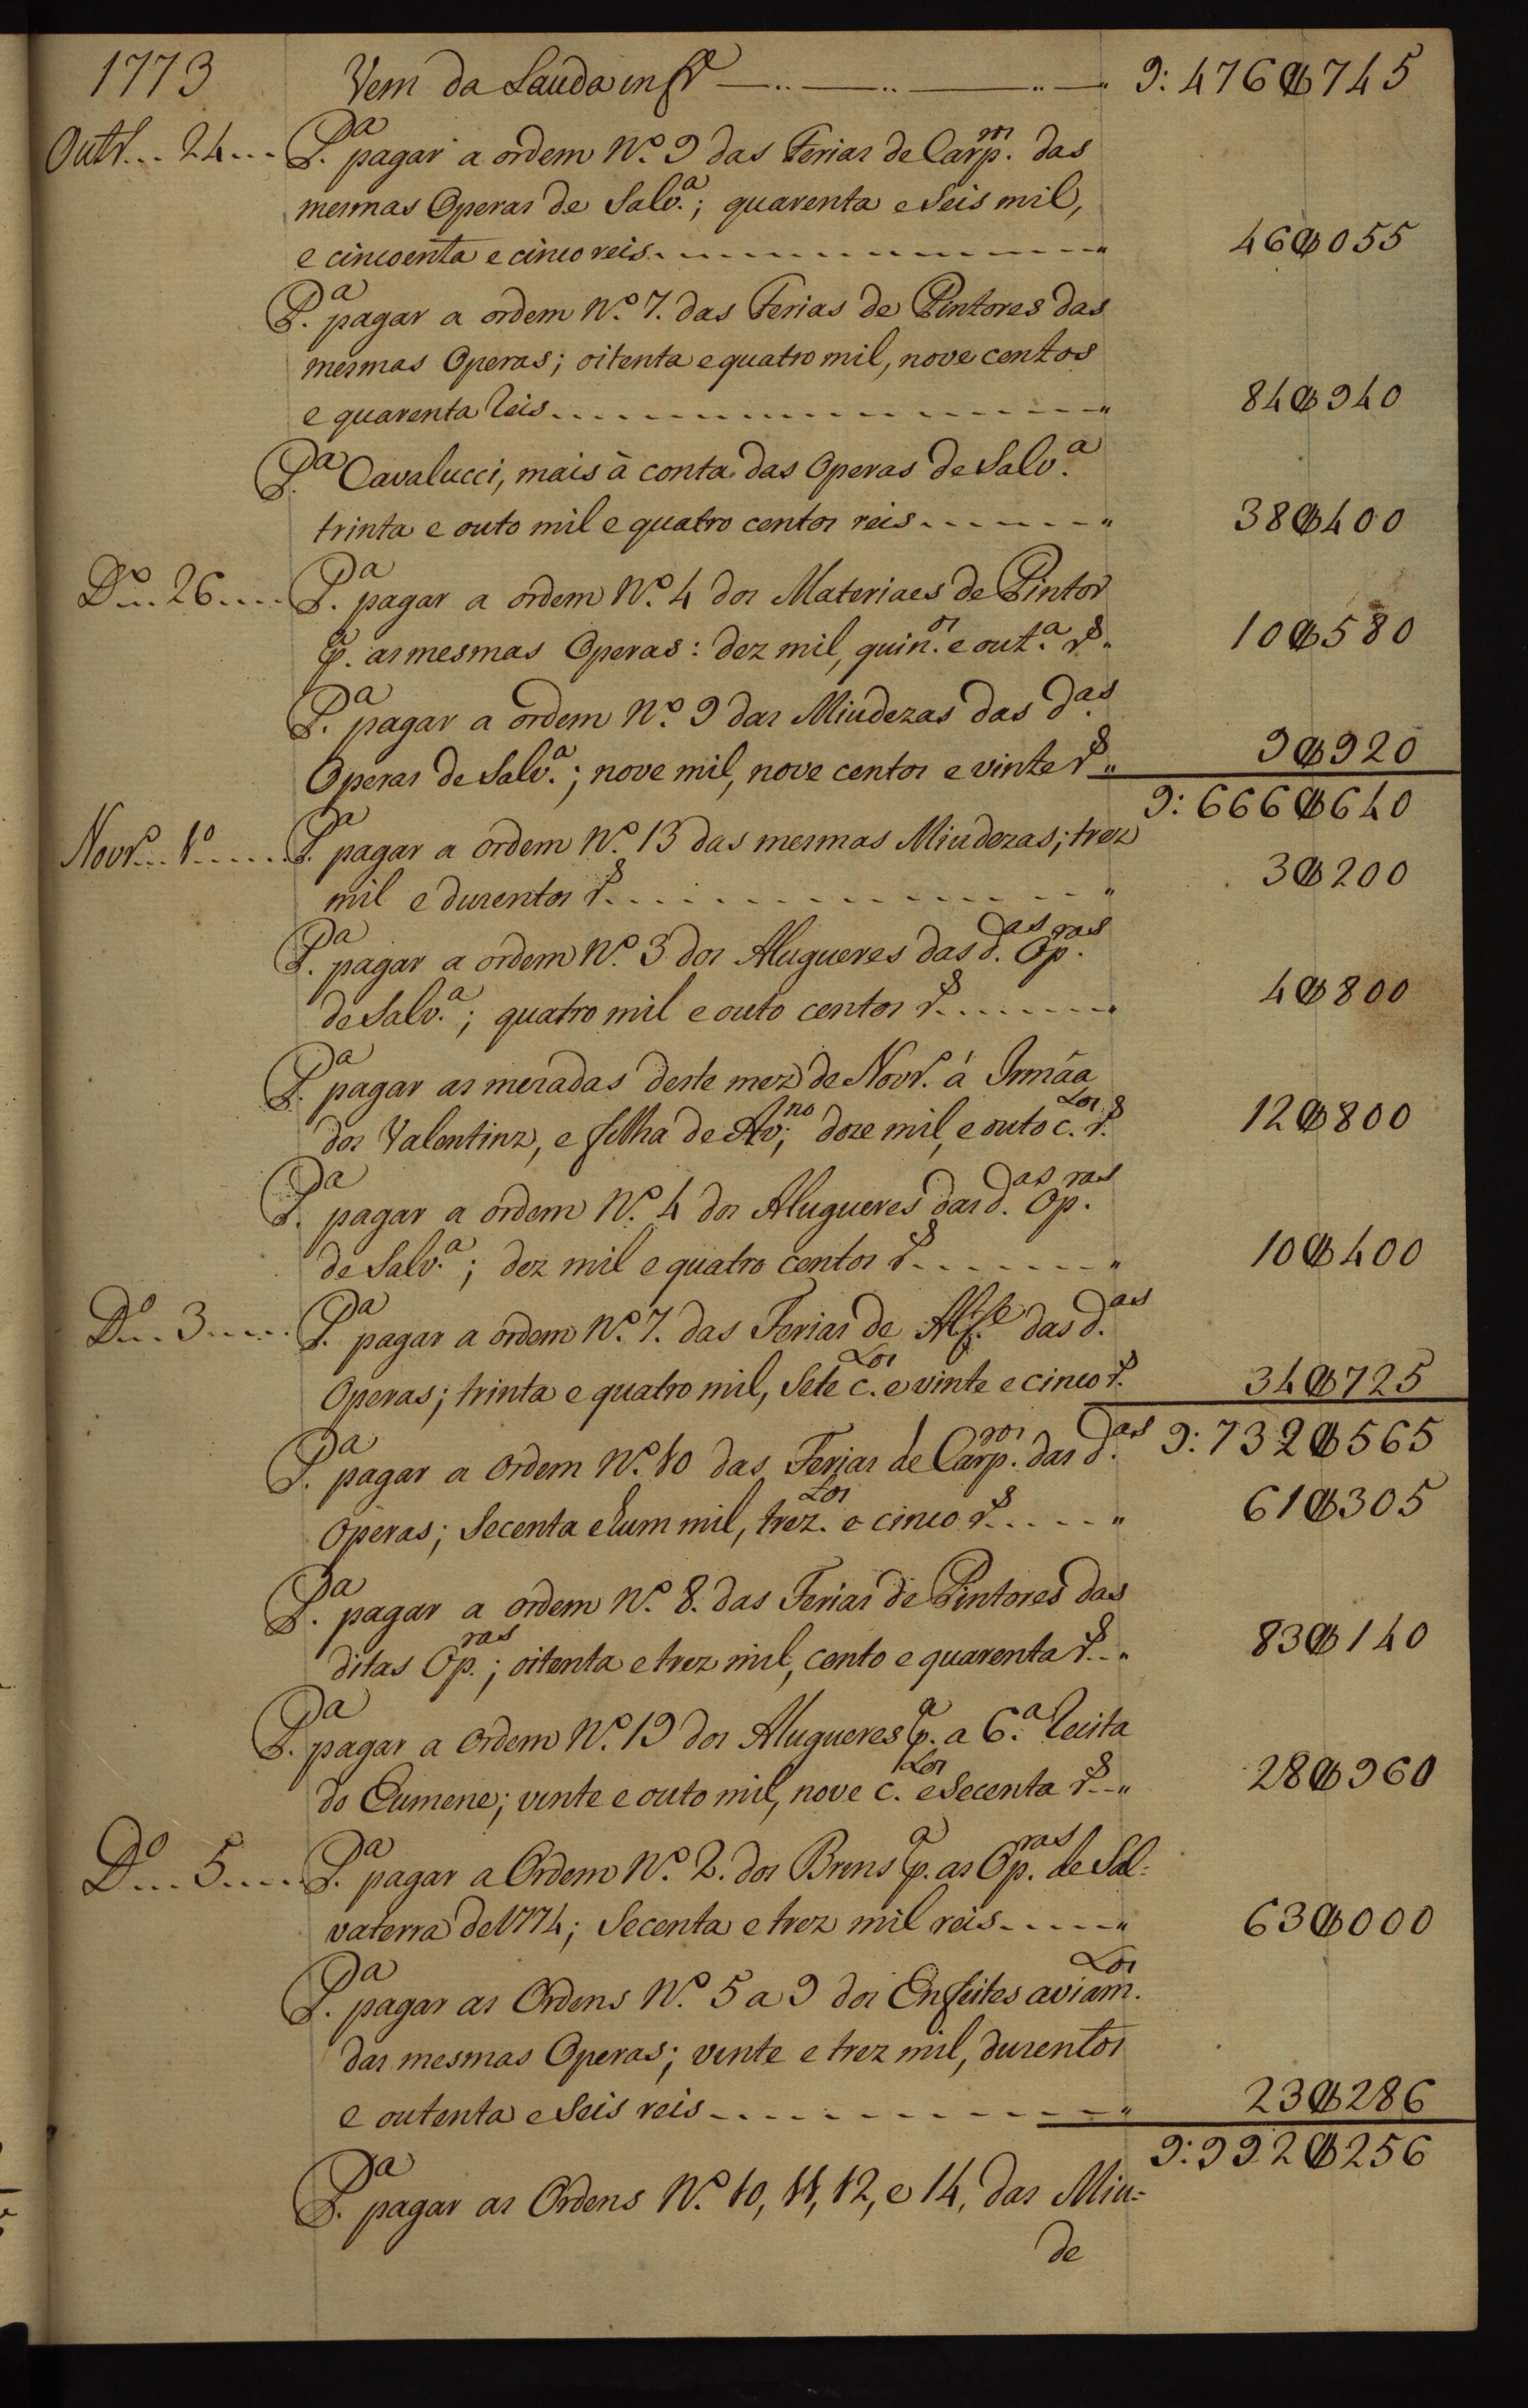 1773 Vem da Lauda in fr.e 9:476$745
Outr.o 24 P.a pagar a ordem N.o 9 das Ferias de Carp.ros das
mesmas Operas de Salv.a; quarenta e seis mil,
e cincoenta e cinco reis 46$055
P.a pagar a ordem N.o 7. das Ferias de Pintores das
mesmas Operas; oitenta e quatro mil, nove centos
e quarenta Reis 84$940
P.a Cavalucci, mais à conta das Operas de Salv.a
trinta e outo mil e quatro centos reis 38$400
D.o 26 P.a pagar a ordem N.o 4 dos Materiaes de Pintor
p.a as mesmas Operas: dez mil, quin.os e out.a r.s 10$580
P.a pagar a ordem N.o 9 das Miudezas das d.as
Operas de Salv.a; nove mil, nove centos e vinte r.s 9$920
9:666$640
Novr.o 1.o P.a pagar a ordem N.o 13 das mesmas Miudezas; trez
mil e duzentos r.s 3$200
P.a pagar a ordem N.o 3 dos Alugueres das d.as Op.ras
de Salv.a; quatro mil e outo centos r.s 4$800
P.a pagar as mezadas deste mez de Novr.o á Irmãa
dos Valentinz, e filha de Av.no; doze mil, e outo c.tos r.s 12$800
P.a pagar a ordem N.o 4 dos Alugueres das d.as Op.ras
de Salv.a; dez mil e quatro centos r.s 10$400
D.o 3 P.a pagar a ordem N.o 7. das Ferias de Alf.e das d.as
Operas; trinta e quatro mil, Sete c.tos e vinte e cinco r.s 34$725
P.a pagar a ordem N.o 10 das Ferias de Carp.ros das d.as 9:732$565
Operas; Secenta e hum mil, trez.tos e cinco r.s 61$305
P.a pagar a ordem N.o 8. das Ferias de Pintores das
ditas Op.ras; oitenta e trez mil, cento e quarenta r.s 83$140
P.a pagar a ordem N.o 19 dos Alugueres p.a a 6.a Recita
do Eumene; vinte e outo mil, nove c.tos e Secenta r.s 28$960
D.o 5 P.a pagar a Ordem N.o 2. dos Brins p.a as Op.ras de Sal=
vaterra de 1774; Secenta e trez mil reis 63$000
P.a pagar as Ordens N.o 5 a 9 dos Enfeites aviam.tos
das mesmas Operas; vinte e trez mil, duzentos
e outenta e Seis reis 23$286
9:992$256
P.a pagar as Ordens N.o 10, 11, 12, e 14, das Miu=
de